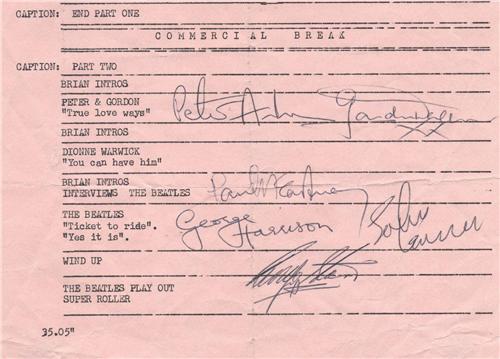 CAPTION: END PART ONE
COMMERCIAL BREAK
CAPTION: PART TWO
BRIAN INTROS
PETER & GORDON
"True love ways"
Peter Asher Gordon Waller xx
BRIAN INTROS
DIONNE WARWICK
"You can have him"
BRIAN INTROS
INTERVIEWS THE BEATLES
Paul McCartney
THE BEATLES
"Ticket to ride".
"Yes it is".
George Harrison
John Lennon
WIND UP
Ringo Starr
THE BEATLES PLAY OUT
SUPER ROLLER
35.05"